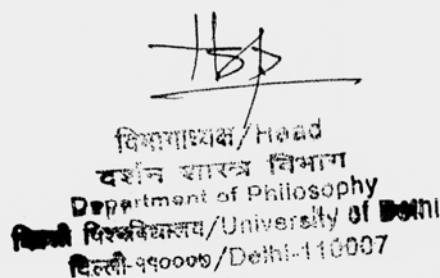 विभागाध्यक्ष/Head
दर्शन शास्त्र विभाग
Department of Philosophy
दिल्ली विश्वविद्यालय/University of Delhi
दिल्ली-११०००७/Delhi-110007